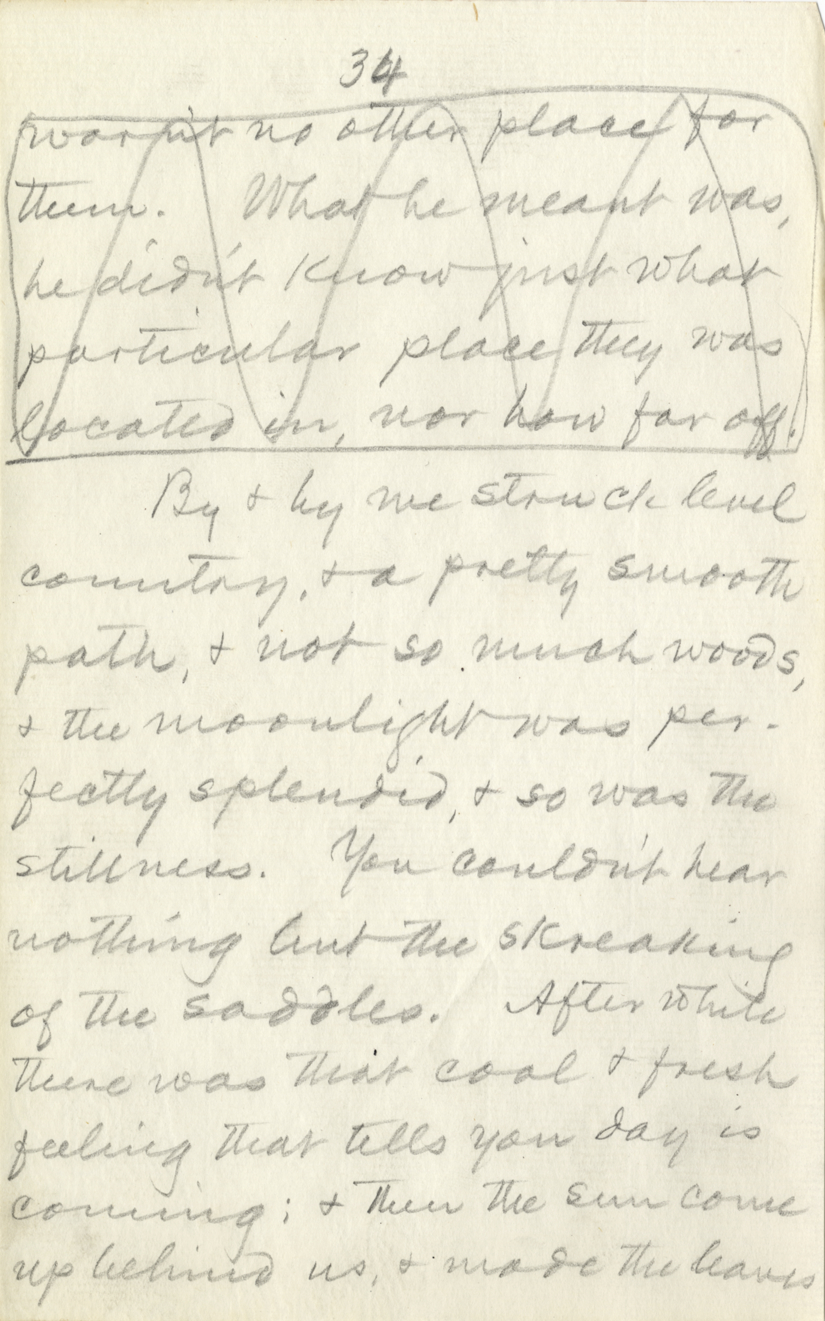 34
warn't no other place for
them. What he meant was,
he didn't know just what
particular place they was
located in, nor how far off.
By & by we struck level
country, & a pretty smooth
path, & not so much woods,
& the moonlight was per-
fectly splendid, & so was the
stillness. You couldn't hear
nothing but the skreaking
of the saddles. After while
there was that cool & fresh
feeling that tells you day is
coming; & then the sun come
up behind us, & made the leaves